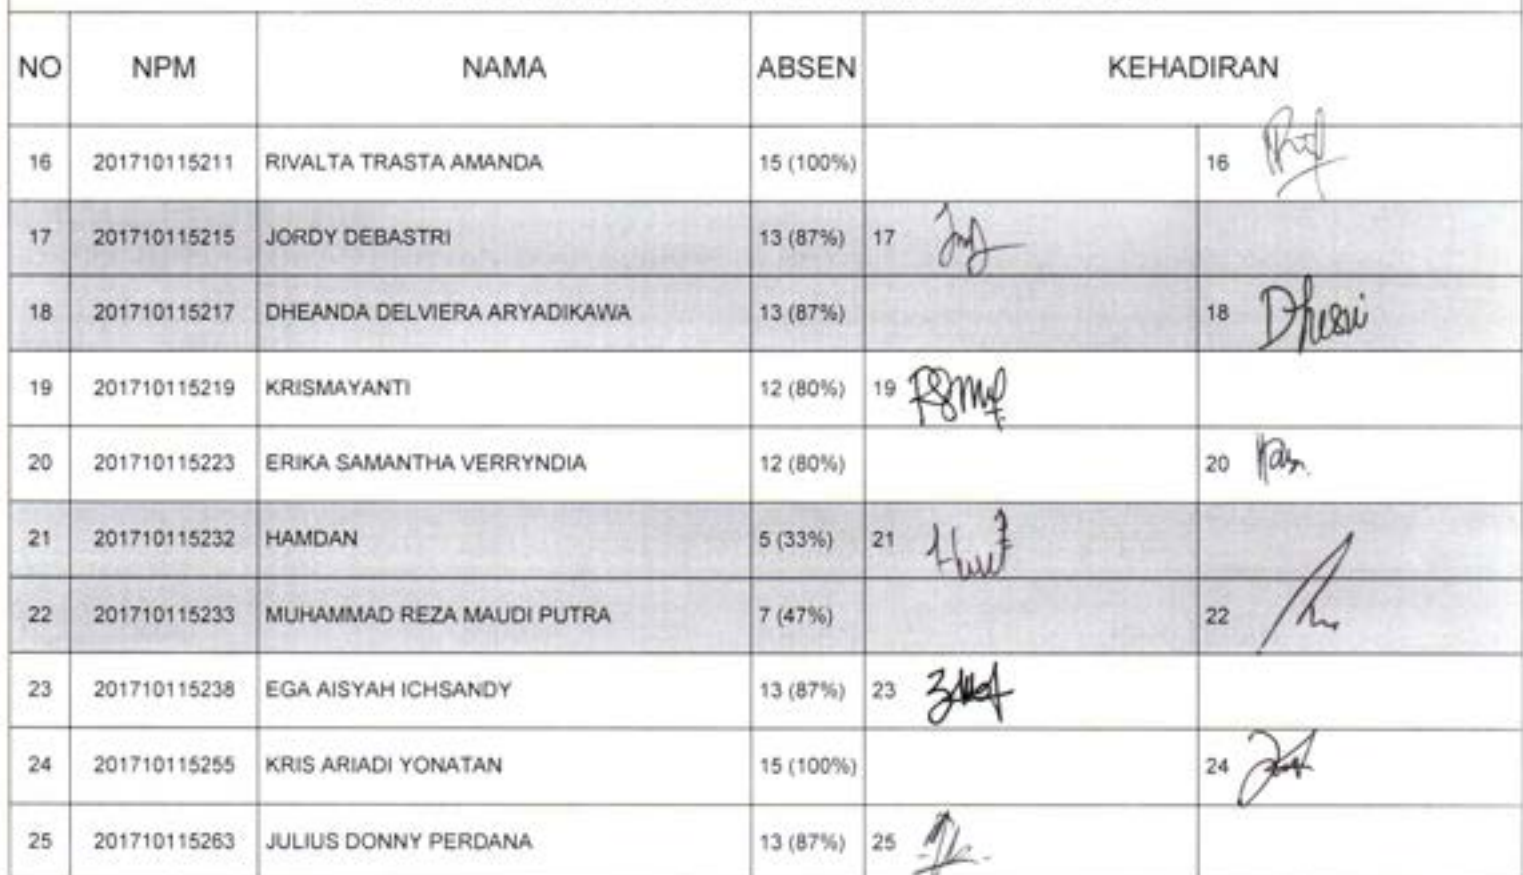 NO NPM NAMA ABSEN KEHADIRAN
16 201710115211 RIVALTA TRASTA AMANDA 15 (100%) 16
17 201710115215 JORDY DEBASTRI 13 (87%) 17
18 201710115217 DHEANDA DELVIERA ARYADIKAWA 13 (87%) 18
19 201710115219 KRISMAYANTI 12 (80%) 19
20 201710115223 ERIKA SAMANTHA VERRYNDIA 12 (80%) 20
21 201710115232 HAMDAN 5 (33%) 21
22 201710115233 MUHAMMAD REZA MAUDI PUTRA 7 (47%) 22
23 201710115238 EGA AISYAH ICHSANDY 13 (87%) 23
24 201710115255 KRIS ARIADI YONATAN 15 (100%) 24
25 201710115263 JULIUS DONNY PERDANA 13 (87%) 25